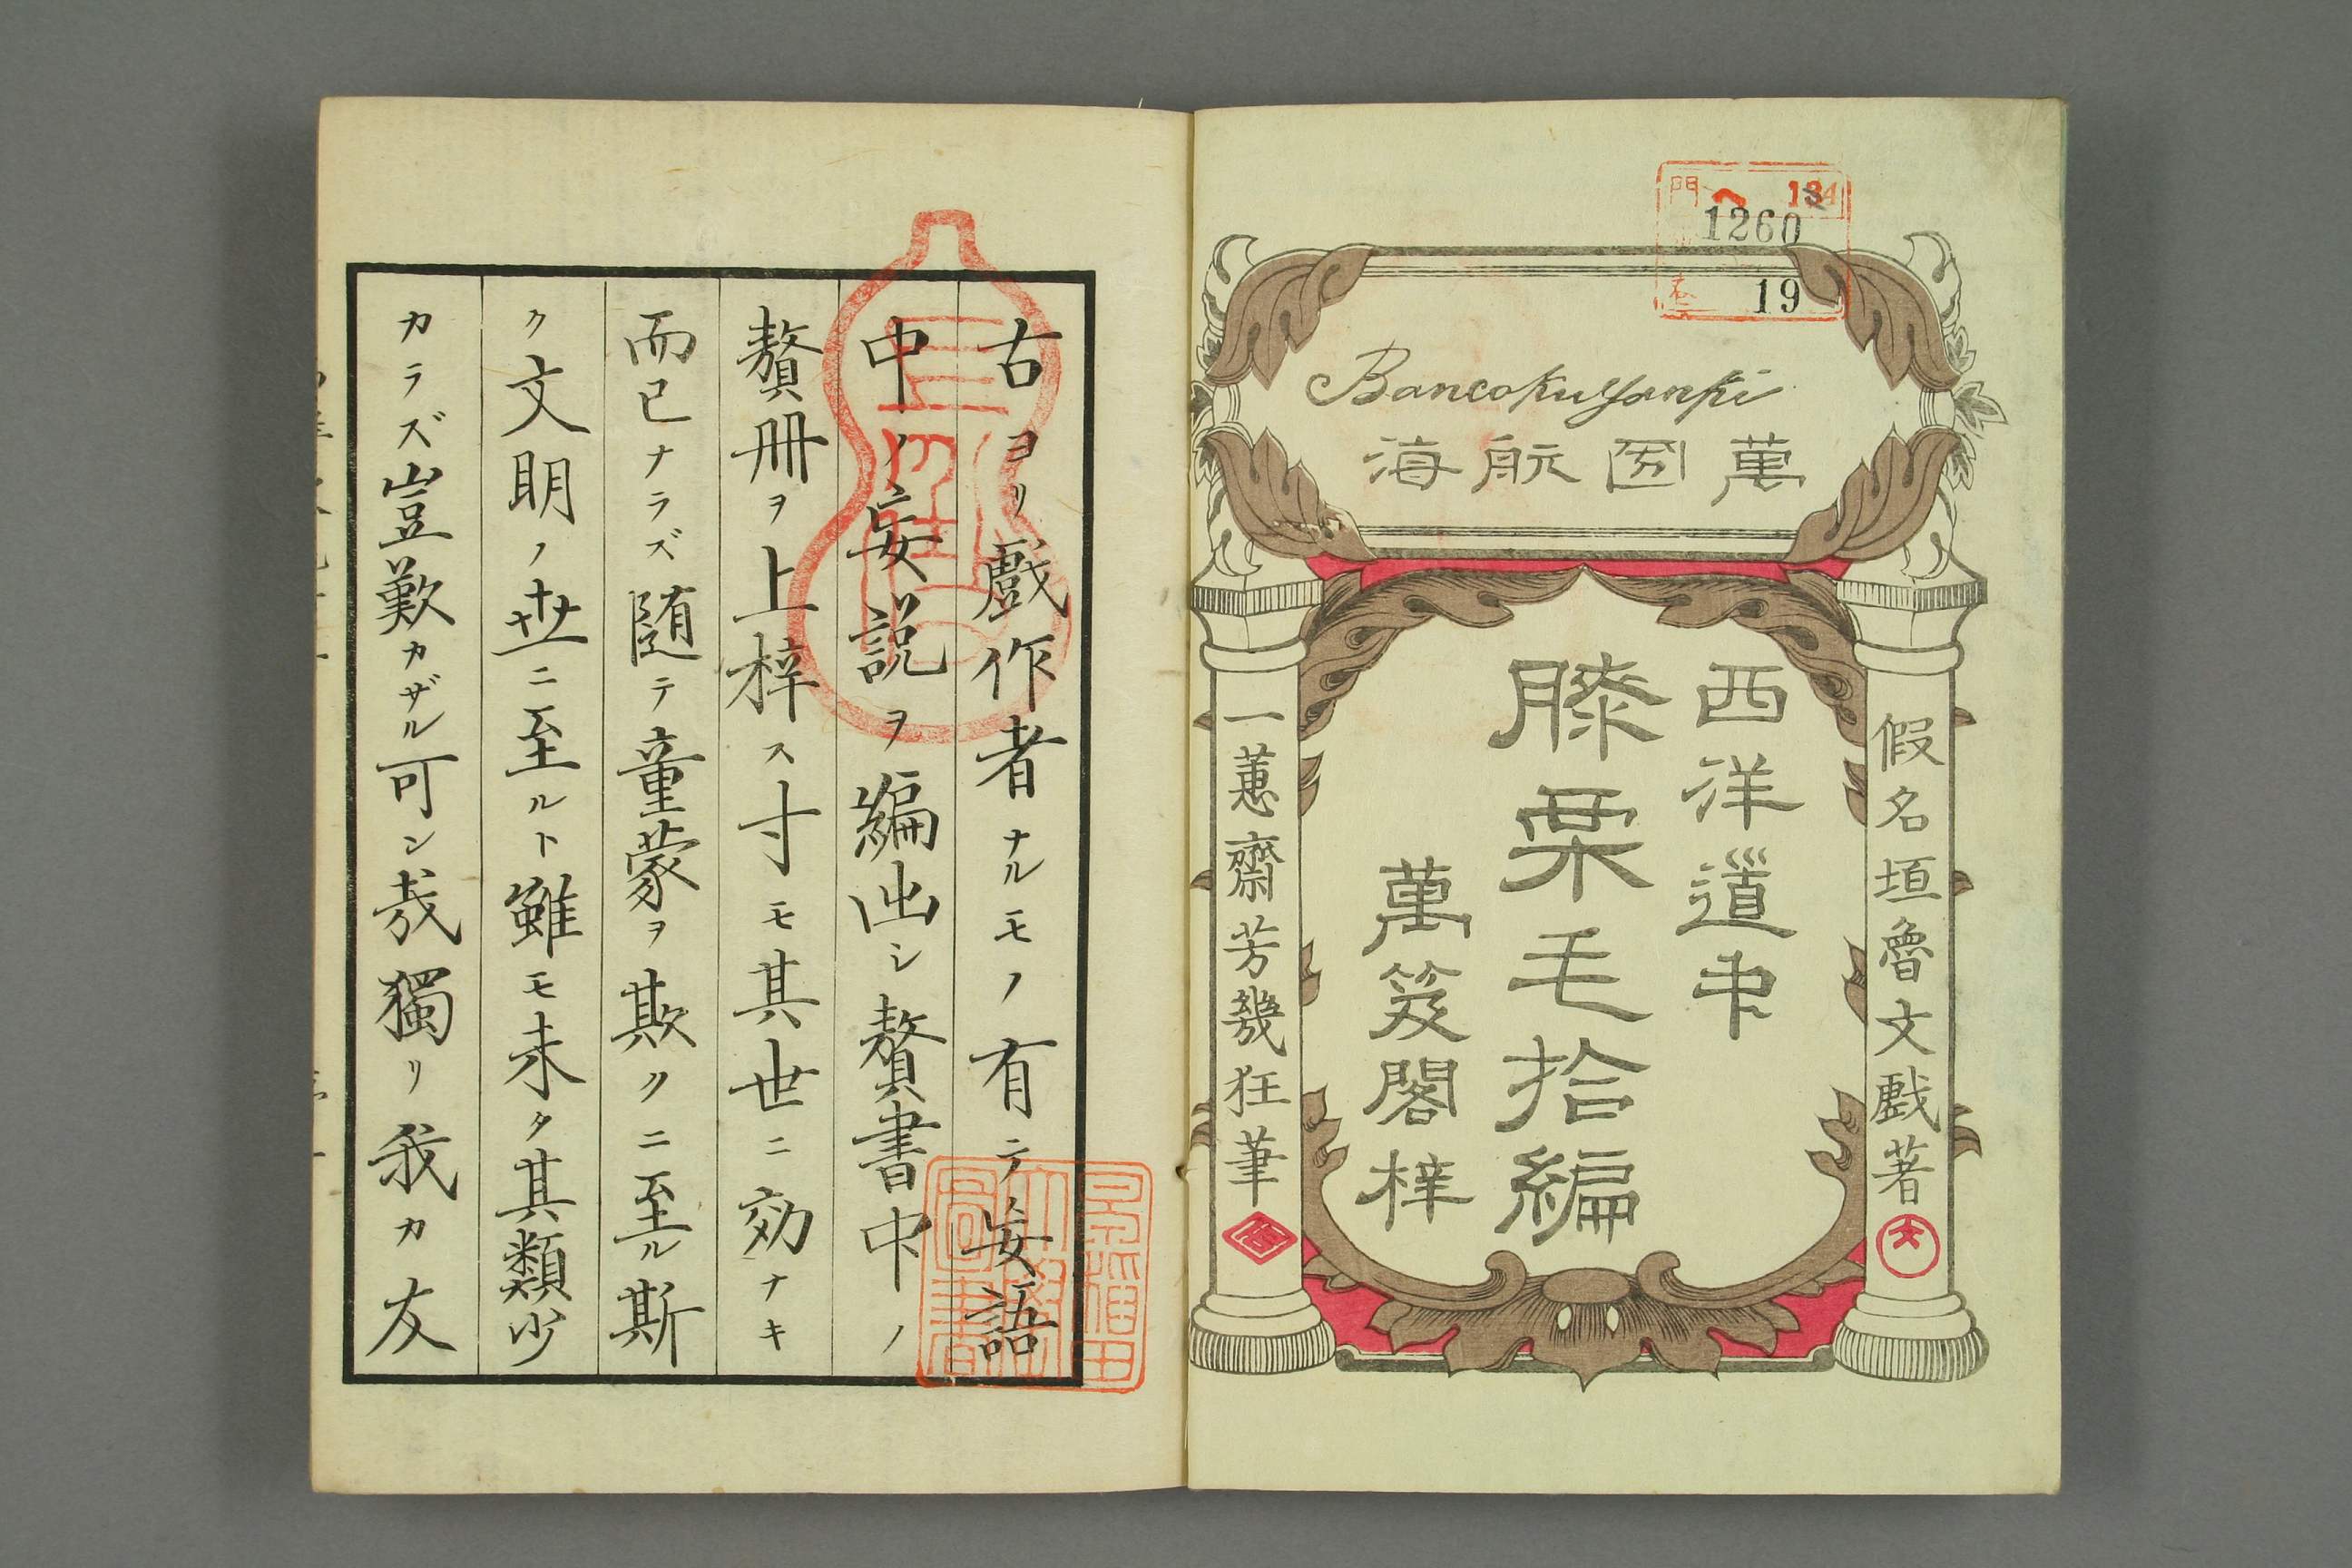 門 へ 13
1260
19
Bancokuyanki
萬國航海
假名垣魯文戯著
西洋道中
膝栗毛拾編
萬笈閣梓
一蕙齋芳幾狂筆
古ヨリ戯作者ナルモノ有テ妄語
中ノ妄説ヲ編出シ贅書中ノ
贅冊ヲ上梓ス寸モ其世ニ効ナキ
而已ナラズ随テ童蒙ヲ欺クニ至ル斯
ク文明ノ世ニ至ルト雖モ未タ其類少
カラズ豈歎カザル可ン哉獨リ我カ友
早稲田大學圖書